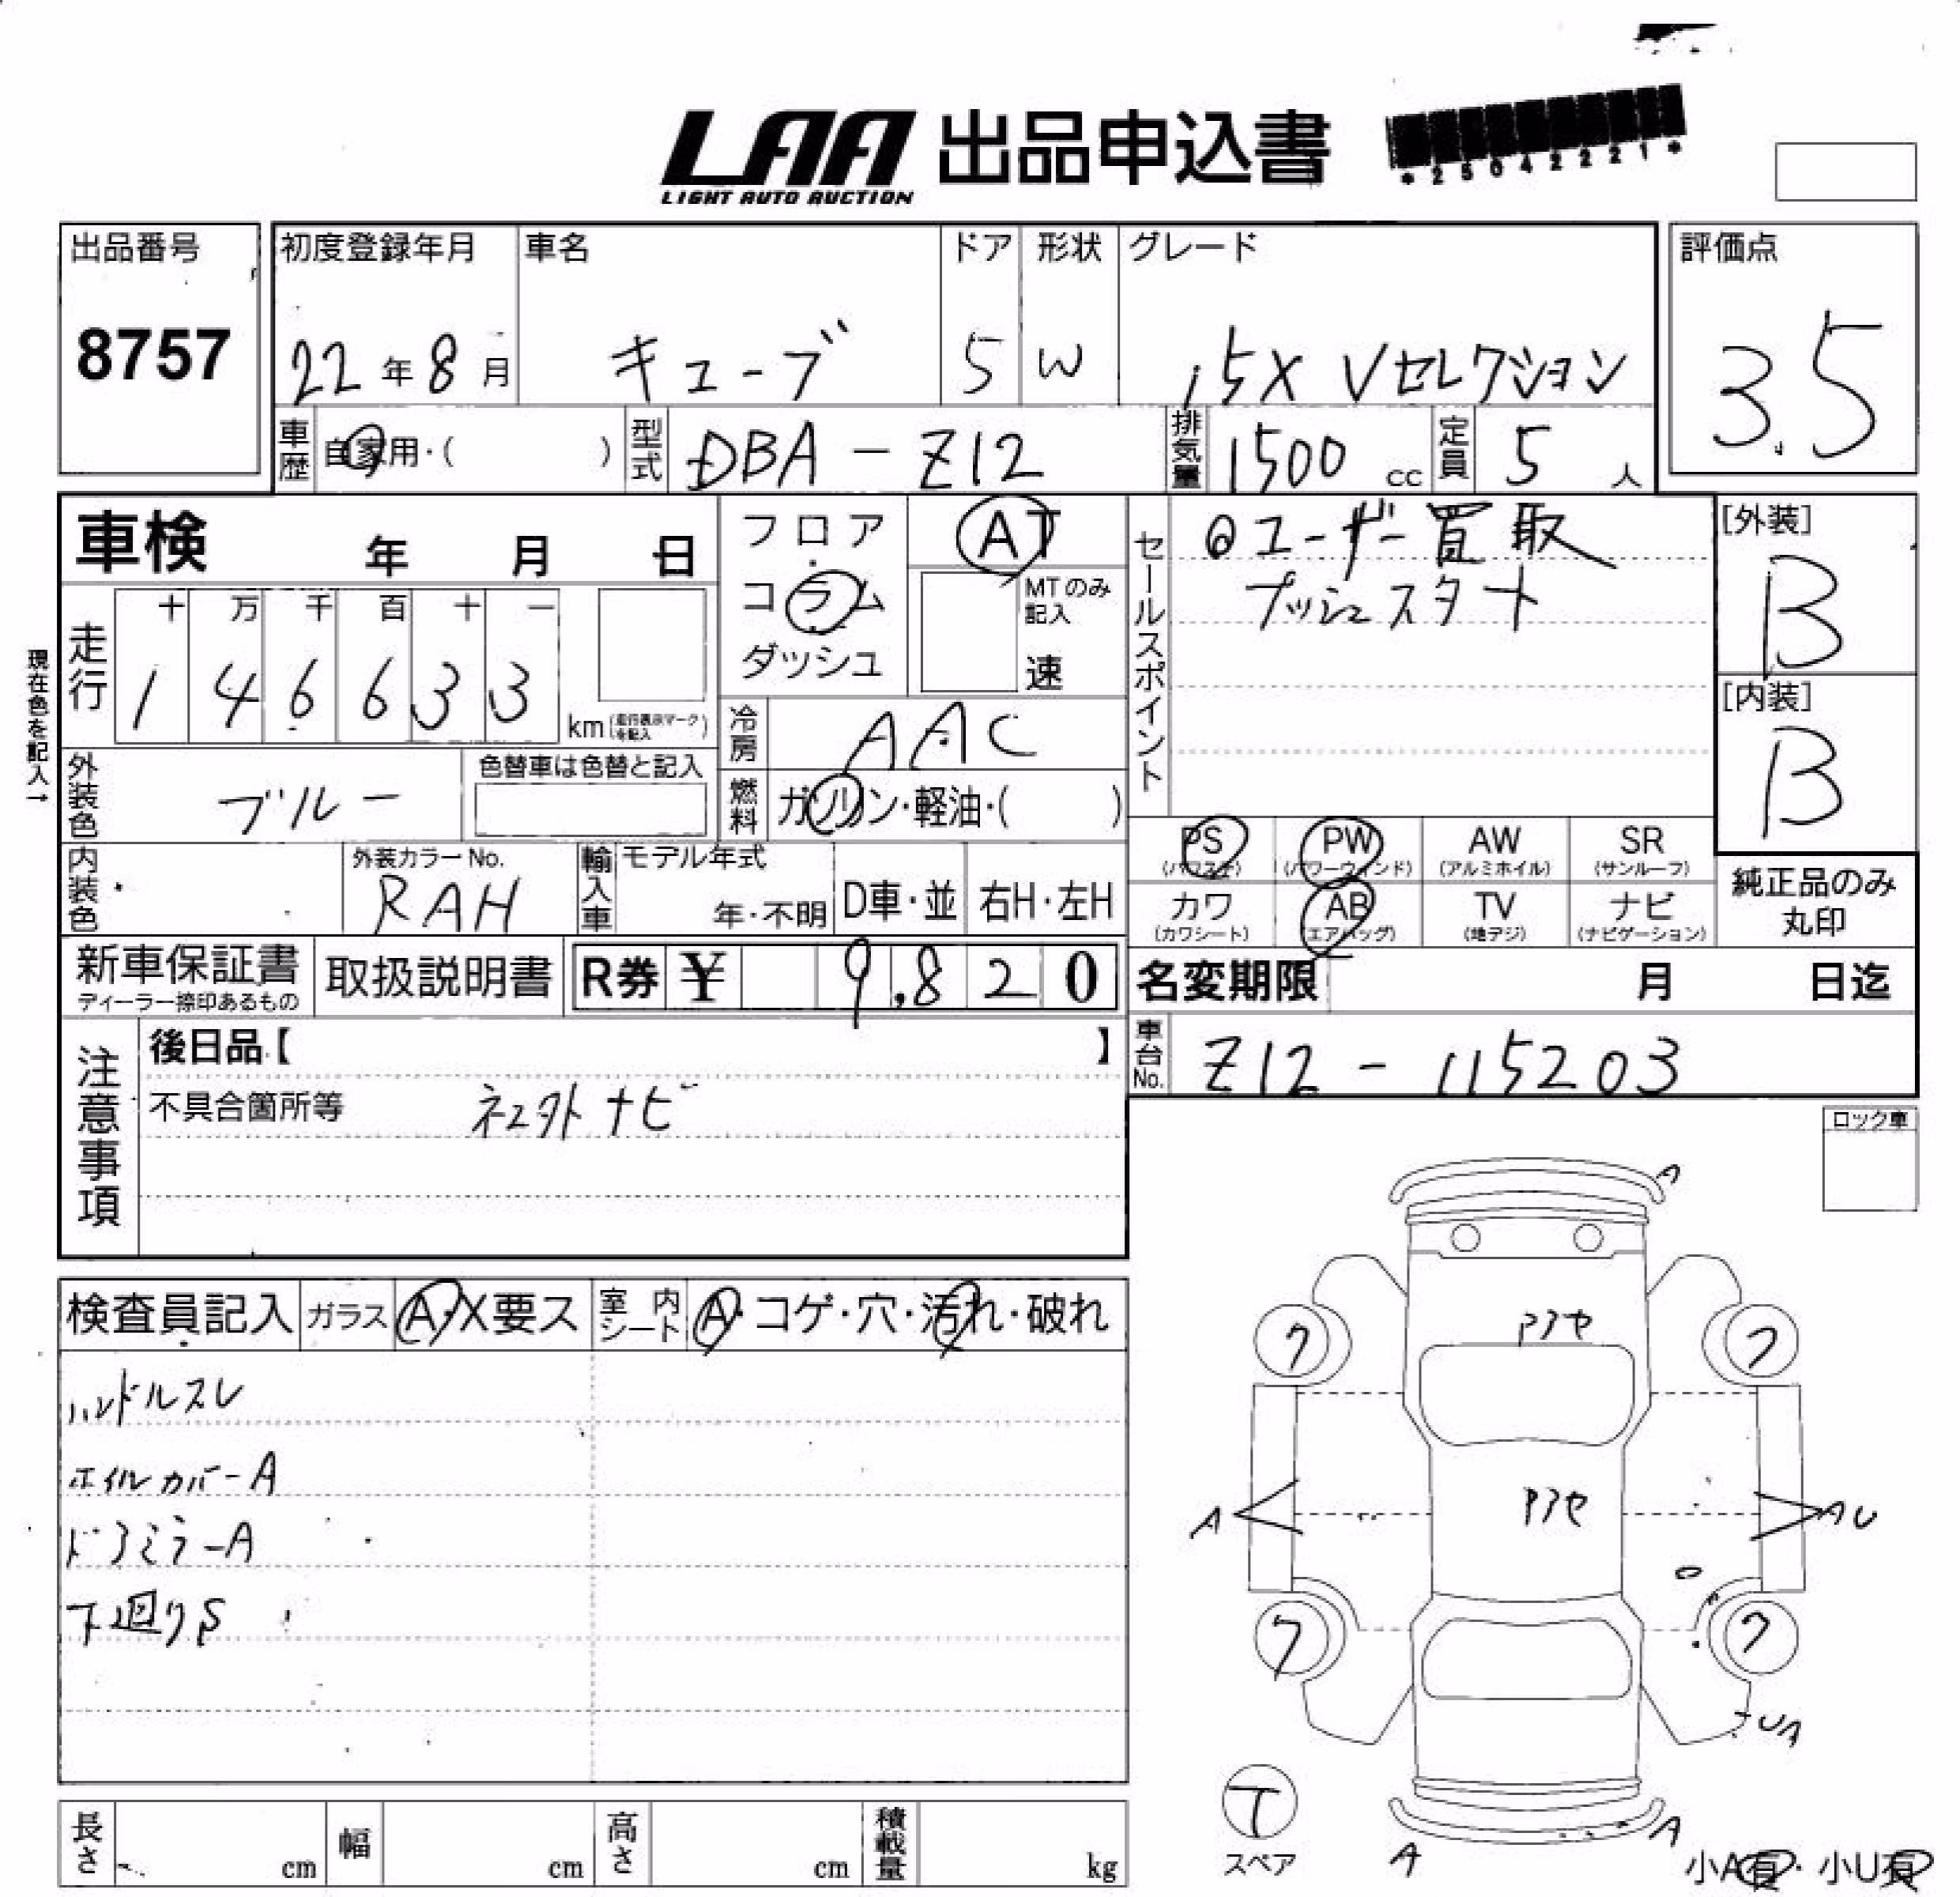 LAA 出品申込書
LIGHT AUTO AUCTION
*25042221*
出品番号
8757
初度登録年月
22年8月
車名
キューブ
ドア
5
形状
W
グレード
15X Vセレクション
評価点
3.5
車歴 自家用・( )
型式 DBA-Z12
排気量 1500 cc
定員 5 人
車検 年 月 日
フロア
コラム
ダッシュ
AT
MTのみ記入
速
セールスポイント
◎ユーザー買取
プッシュスタート
[外装]
B
[内装]
B
現在色を記入→
走行
十 万 千 百 十 一
1 4 6 6 3 3
km(走行表示マークを記入)
冷房 AAC
燃料 ガソリン・軽油・( )
外装色 ブルー
色替車は色替と記入
内装色
外装カラーNo.
RAH
輸入車 モデル年式
年・不明
D車・並
右H・左H
PS (パワステ)
PW (パワーウィンド)
AW (アルミホイル)
SR (サンルーフ)
カワ (カワシート)
AB (エアバッグ)
TV (地デジ)
ナビ (ナビゲーション)
純正品のみ丸印
新車保証書
ディーラー捺印あるもの
取扱説明書
R券 ¥ 9,820
名変期限 月 日迄
車台No. Z12-115203
注意事項
後日品【 】
不具合箇所等 社外ナビ
ロック車
検査員記入
ガラス A・X要ス
室内シート A・コゲ・穴・汚れ・破れ
ハンドルスレ
ホイルカバーA
ドアミラーA
下廻りS
A
アセ
フ
フ
アセ
A
AU
フ
フ
UA
T
スペア
A
A
小A有・小U有
長さ cm
幅 cm
高さ cm
積載量 kg